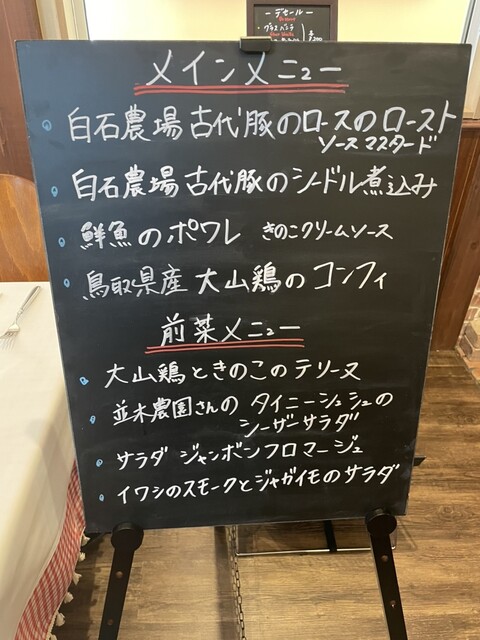 ーデセールー
メインメニュー
白石農場古代豚のロースのロースト
ソースマスタード
白石農場古代豚のシードル煮込み
鮮魚のポワレ きのこクリームソース
鳥取県産大山鶏のコンフィ
前菜メニュー
大山鶏ときのこのテリーヌ
並木農園さんのタイニーシュシュの
シーザーサラダ
サラダ ジャンボンフロマージュ
イワシのスモークとジャガイモのサラダ